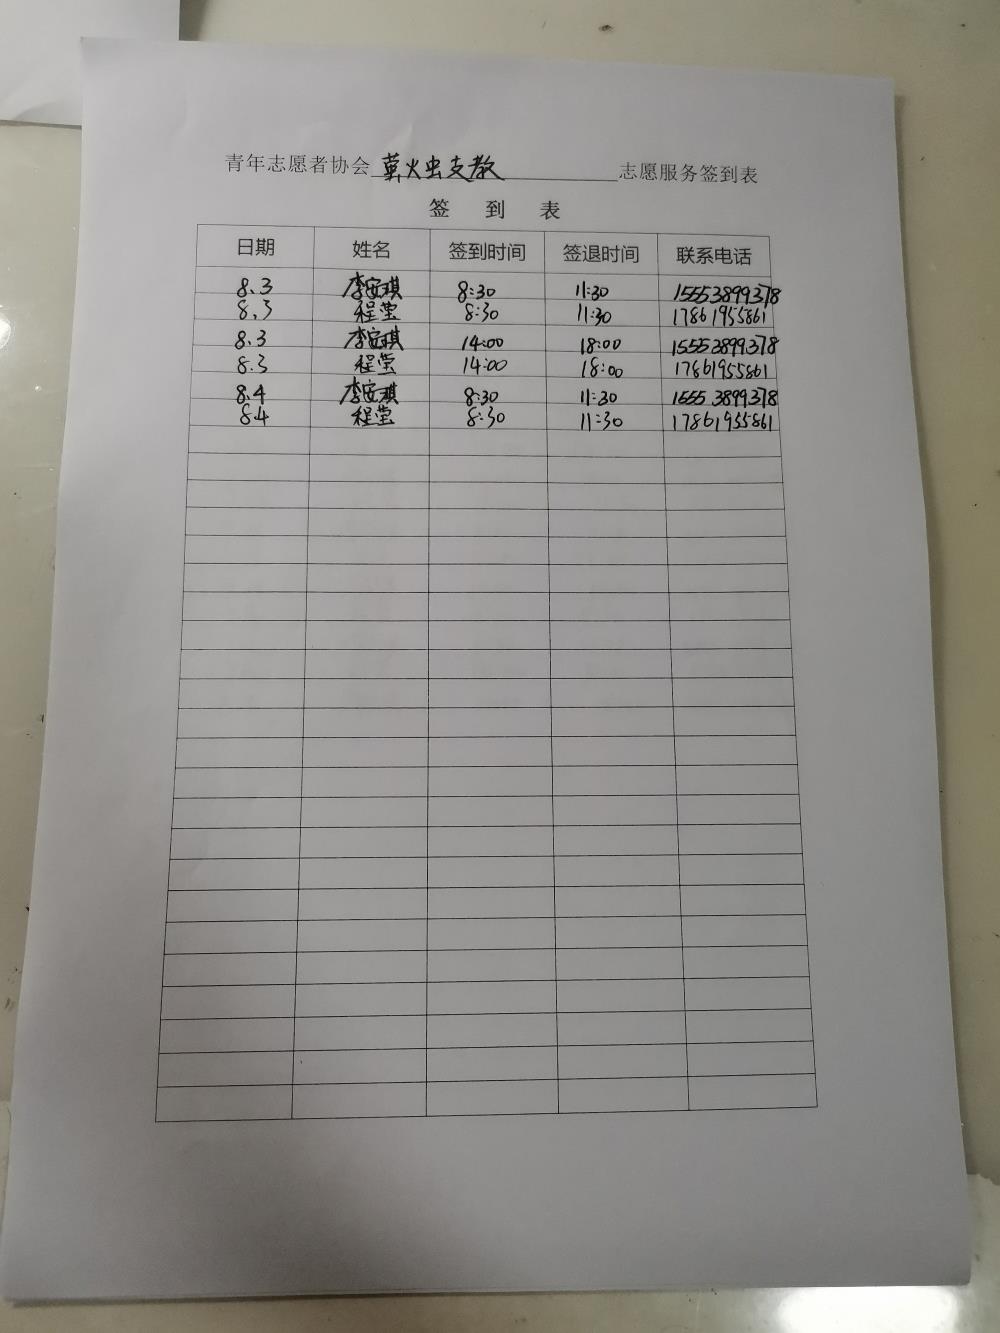 青年志愿者协会 萤火虫支教 志愿服务签到表
签 到 表
日期 姓名 签到时间 签退时间 联系电话
8.3 李安琪 8:30 11:30 15553899378
8.3 程莹 8:30 11:30 17861955861
8.3 李安琪 14:00 18:00 15553899378
8.3 程莹 14:00 18:00 17861955861
8.4 李安琪 8:30 11:30 15553899378
8.4 程莹 8:30 11:30 17861955861